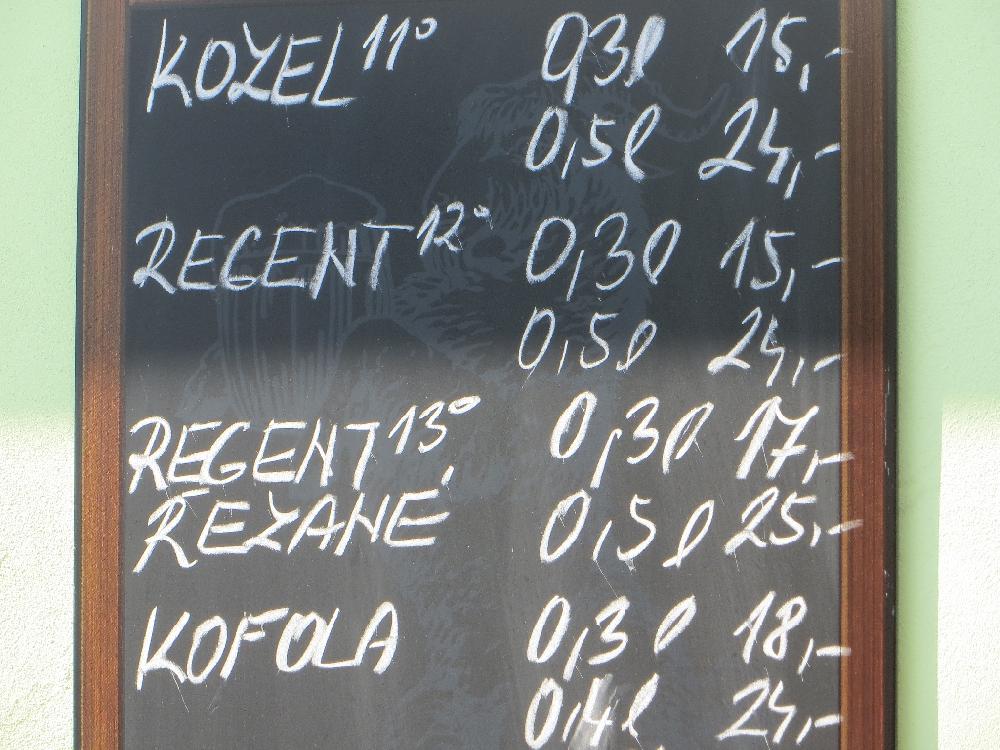 KOZEL 11° 0,3l 15,-
0,5l 24,-
REGENT 12° 0,3l 15,-
0,5l 24,-
REGENT 13° 0,3l 17,-
ŘEZANÉ 0,5l 25,-
KOFOLA 0,3l 18,-
0,4l 24,-